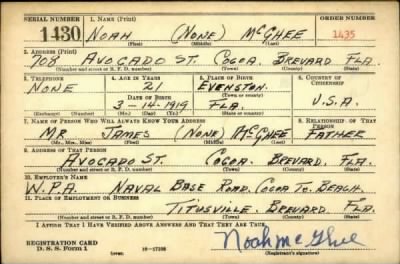 SERIAL NUMBER 1. NAME (Print) ORDER NUMBER
1430 NOAH (NONE) McGHEE 1435
(First) (Middle) (Last)
2. ADDRESS (Print)
708 AVOCADO ST. COCOA, BREVARD FLA.
(Number and street or R. F. D. number) (Town) (County) (State)
3. TELEPHONE 4. AGE IN YEARS 5. PLACE OF BIRTH 6. COUNTRY OF CITIZENSHIP
NONE 21 EVENSTON
DATE OF BIRTH (Town or county)
3-14-1919 FLA. U.S.A.
(Exchange) (Number) (Mo.) (Day) (Yr.) (State or country)
7. NAME OF PERSON WHO WILL ALWAYS KNOW YOUR ADDRESS 8. RELATIONSHIP OF THAT PERSON
MR JAMES (NONE) McGHEE FATHER
(Mr., Mrs., Miss) (First) (Middle) (Last)
9. ADDRESS OF THAT PERSON
AVOCADO ST. COCOA BREVARD, FLA.
(Number and street or R. F. D. number) (Town) (County) (State)
10. EMPLOYER'S NAME
W.P.A. NAVAL BASE ROAD, COCOA TO BEACH.
11. PLACE OF EMPLOYMENT OR BUSINESS
TITUSVILLE, BREVARD FLA.
(Number and street or R. F. D. number) (Town) (County) (State)
I AFFIRM THAT I HAVE VERIFIED ABOVE ANSWERS AND THAT THEY ARE TRUE.
REGISTRATION CARD
D. S. S. Form 1 16—17105 Noah McGhee
(over) (Registrant's signature)